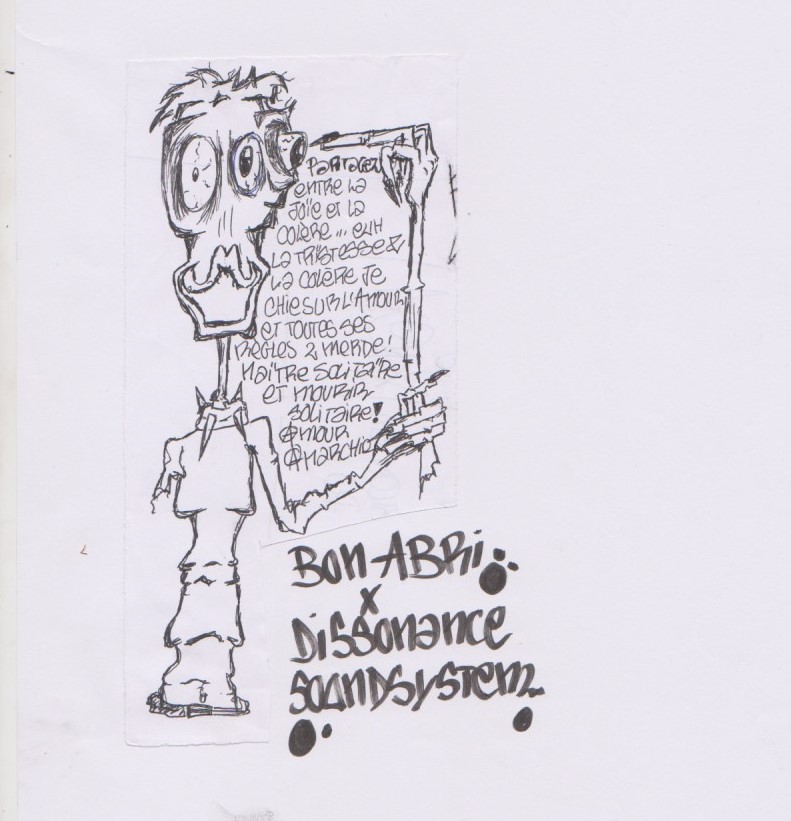 Partager
entre la
Joïe et la
colère... euh
la tristesse &
la colère je
chie sur l'Amour
et toutes ses
règles 2 merde!
Naître solitaire
et mourir
solitaire!
Amour
Anarchie
Bon-ABRi
x
Dissonance
soundsystem